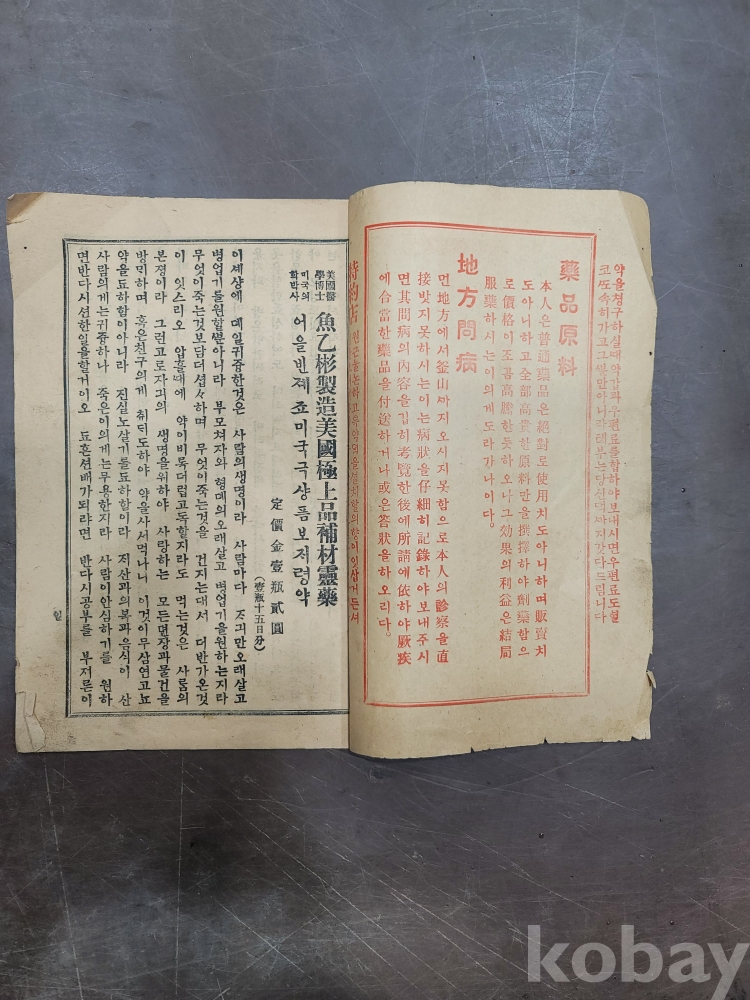 약을청구하실때약갑과우편료를합하야보내시면우편료도헐
코또속히가고그뿐만아니라례부는당신댁까지갓다드립니다
藥品原料
本人은普通藥品은絕對로使用치도아니하며販賣치
도아니하고全部高貴한原料만을撰擇하야劑藥함으
로價格이조곰高騰한듯하오나그効果의利益은結局
服藥하시는이의게도라가나이다。
地方問病
먼地方에서釜山까지오시지못함으로本人의診察을直
接밧지못하시는이는病狀을仔細히記錄하야보내주시
면其問病의內容을깁히考覽한後에所請에依하야厥疾
에合當한藥品을付送하거나或은答狀을하오리다。
特約店
美國醫學博士 魚乙彬製造美國極上品補材靈藥
미국의학박사 어을빈졔죠미국극샹픔보저령약
定價金壹瓶貳圓
(壹瓶十五日分)
이셰상에 뎨일귀즁한것은 사람의생명이라 사람마다 자긔만오래살고
병업기를원할뿐아니라 부모쳐자와 형뎨의오래살고 병업기을원하는지라
무엇이죽는것보담더셥々하며 무엇이죽는것을 건지는대서 더반가온것
이 잇스리오 압흘때에 약이비록더럽고독할지라도 먹는것은 사룸의
본졍이라 그런고로자긔의 생명을위하야 사랑하는 모든면쟝과물건을
방민하며 혹은친구의게 취디도하야 약을사서먹나니 이것이무삼연고뇨
약을됴하할이아니라 진실노살기를됴하함이라 직산과의복과음식이 산
사람의게는귀즁하나 죽은이의게는무용한지라 사람이안심하기를 원하
면반다시션한일을할거이오 됴흔션배가되랴면 반다시공부를 부저른이
일
kobay